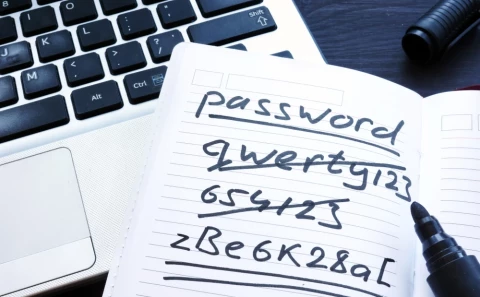 Shift
K L
M
Alt Ctrl
password
qwerty123
654123
zBe6K28a[